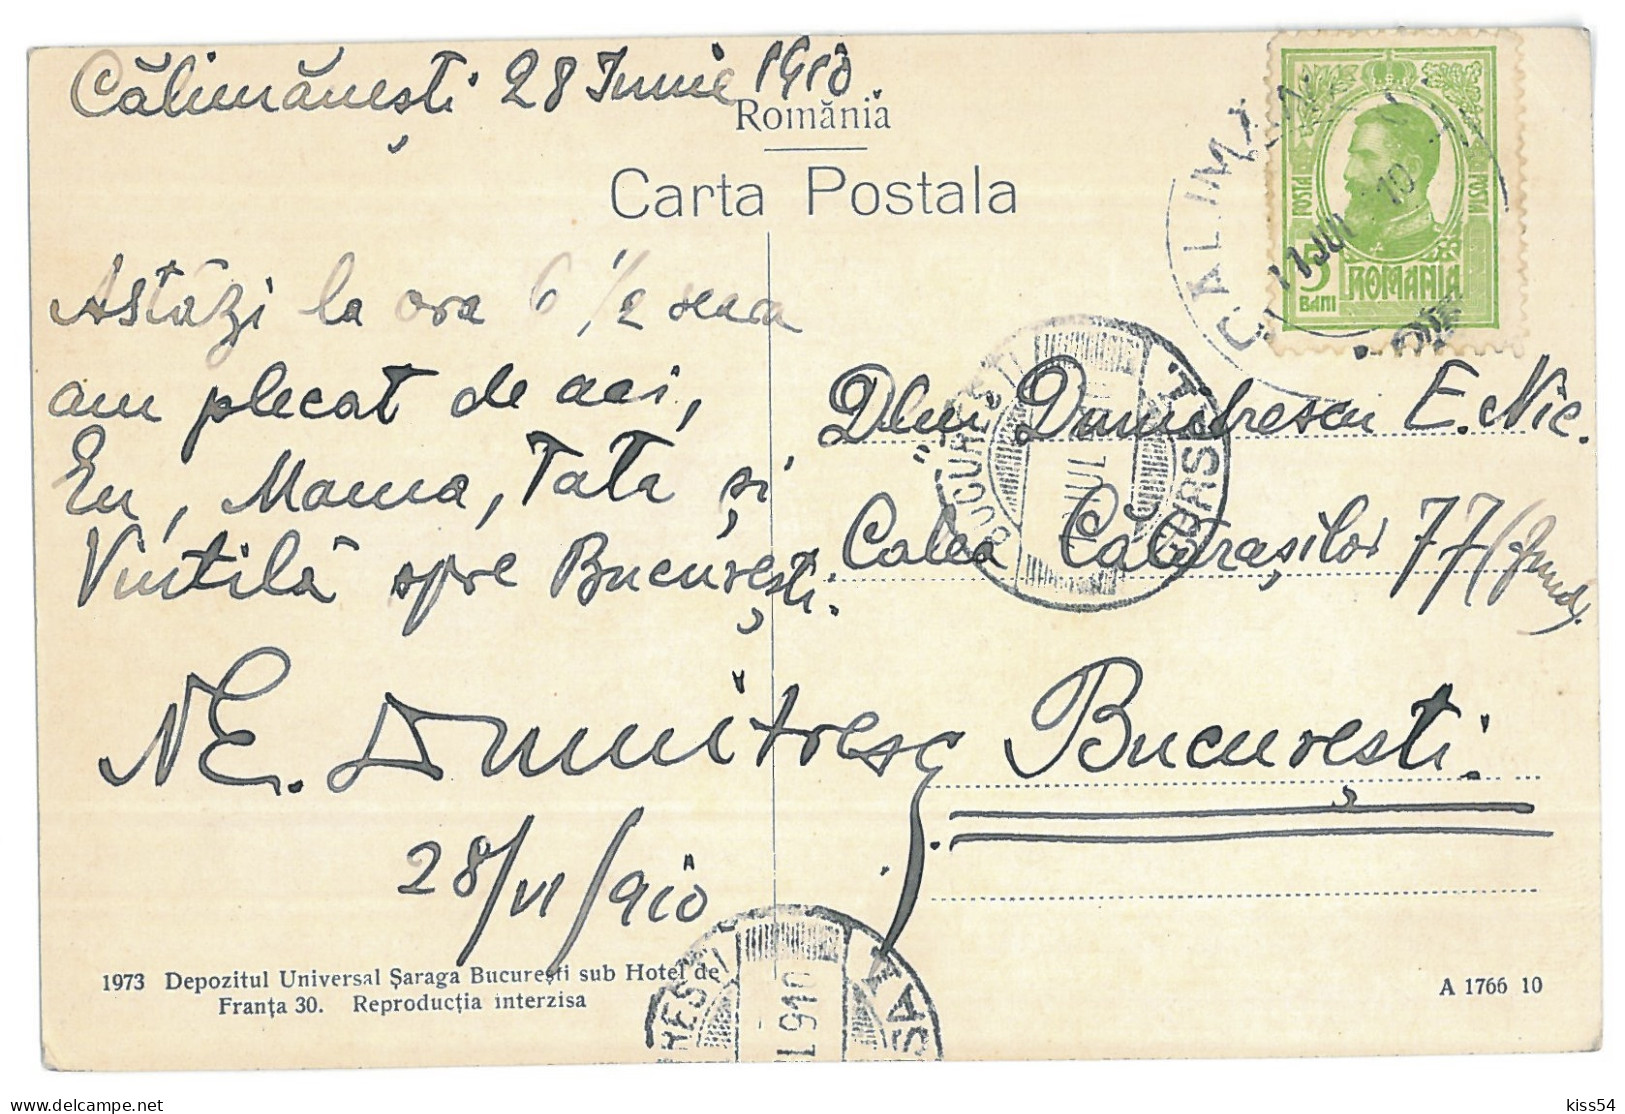 Călimănești 28 Iunie 1910
România
Carta Postala
Astăzi la ora 6 1/2 seara
am plecat de aci,
Eu, Mama, Tata și
Vintilă spre București.
N.E. Dumitrescu
28/VI/910
Dlui Dumitrescu E. Nic.
Calea Călărașilor 77
București.
POSTA
POSTA
5
BANI
ROMANIA
CALIMAN
11 JUL 10
BUCURESTI
JUL
CURSA I
1910
1973 Depozitul Universal Șaraga București sub Hotel de
Franța 30. Reproducția interzisa
A 1766 10
delcampe.net
kiss54